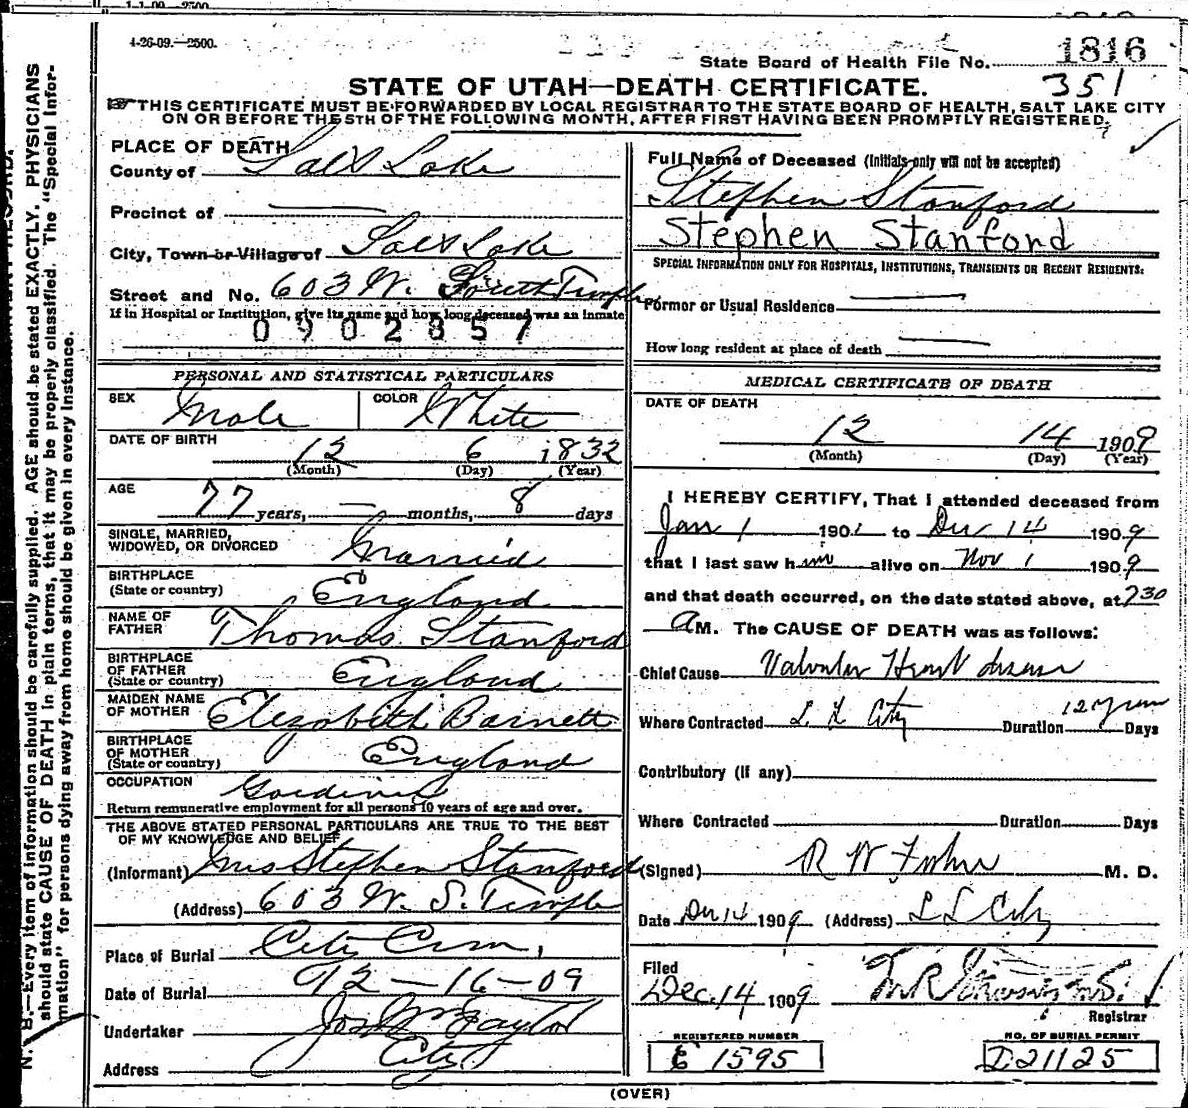 1-1-09 2500
4-26-09.—2500.
State Board of Health File No. 1816
351
STATE OF UTAH—DEATH CERTIFICATE.
THIS CERTIFICATE MUST BE FORWARDED BY LOCAL REGISTRAR TO THE STATE BOARD OF HEALTH, SALT LAKE CITY
ON OR BEFORE THE 5TH OF THE FOLLOWING MONTH, AFTER FIRST HAVING BEEN PROMPTLY REGISTERED.
PLACE OF DEATH
County of Salt Lake
Precinct of —
City, Town or Village of Salt Lake
Street and No. 603 W. South Temple
If in Hospital or Institution, give its name and how long deceased was an inmate
0902857
Full Name of Deceased (Initials only will not be accepted)
Stephen Stanford
Stephen Stanford
SPECIAL INFORMATION ONLY FOR HOSPITALS, INSTITUTIONS, TRANSIENTS OR RECENT RESIDENTS:
Former or Usual Residence —
How long resident at place of death —
PERSONAL AND STATISTICAL PARTICULARS
SEX Male COLOR White
DATE OF BIRTH 12 6 1832
(Month) (Day) (Year)
AGE 77 years, — months, 8 days
SINGLE, MARRIED,
WIDOWED, OR DIVORCED Married
BIRTHPLACE
(State or country) England
NAME OF
FATHER Thomas Stanford
BIRTHPLACE
OF FATHER
(State or country) England
MAIDEN NAME
OF MOTHER Elizabeth Barnett
BIRTHPLACE
OF MOTHER
(State or country) England
OCCUPATION
Return remunerative employment for all persons 10 years of age and over.
THE ABOVE STATED PERSONAL PARTICULARS ARE TRUE TO THE BEST
OF MY KNOWLEDGE AND BELIEF
(Informant) Mrs Stephen Stanford
(Address) 603 W. S. Temple
Place of Burial City Cem,
Date of Burial 12-16-09
Undertaker Jos Wm Taylor
Address City
MEDICAL CERTIFICATE OF DEATH
DATE OF DEATH
12 14 1909
(Month) (Day) (Year)
I HEREBY CERTIFY, That I attended deceased from
Jan 1 1901 to Dec 14 1909
that I last saw him alive on Nov 1 1909
and that death occurred, on the date stated above, at 730
A M. The CAUSE OF DEATH was as follows:
Chief Cause Valvular Heart disease
Where Contracted S. L City Duration 12 years Days
Contributory (If any)
Where Contracted Duration Days
(Signed) R W Fisher M. D.
Date Dec 14 1909 (Address) S L City
Filed
Dec. 14 1909
Registrar
REGISTERED NUMBER
E 1595
NO. OF BURIAL PERMIT
D21125
(OVER)
N. B.—Every item of information should be carefully supplied. AGE should be stated EXACTLY. PHYSICIANS
should state CAUSE OF DEATH in plain terms, that it may be properly classified. The "Special Infor-
mation" for persons dying away from home should be given in every instance.